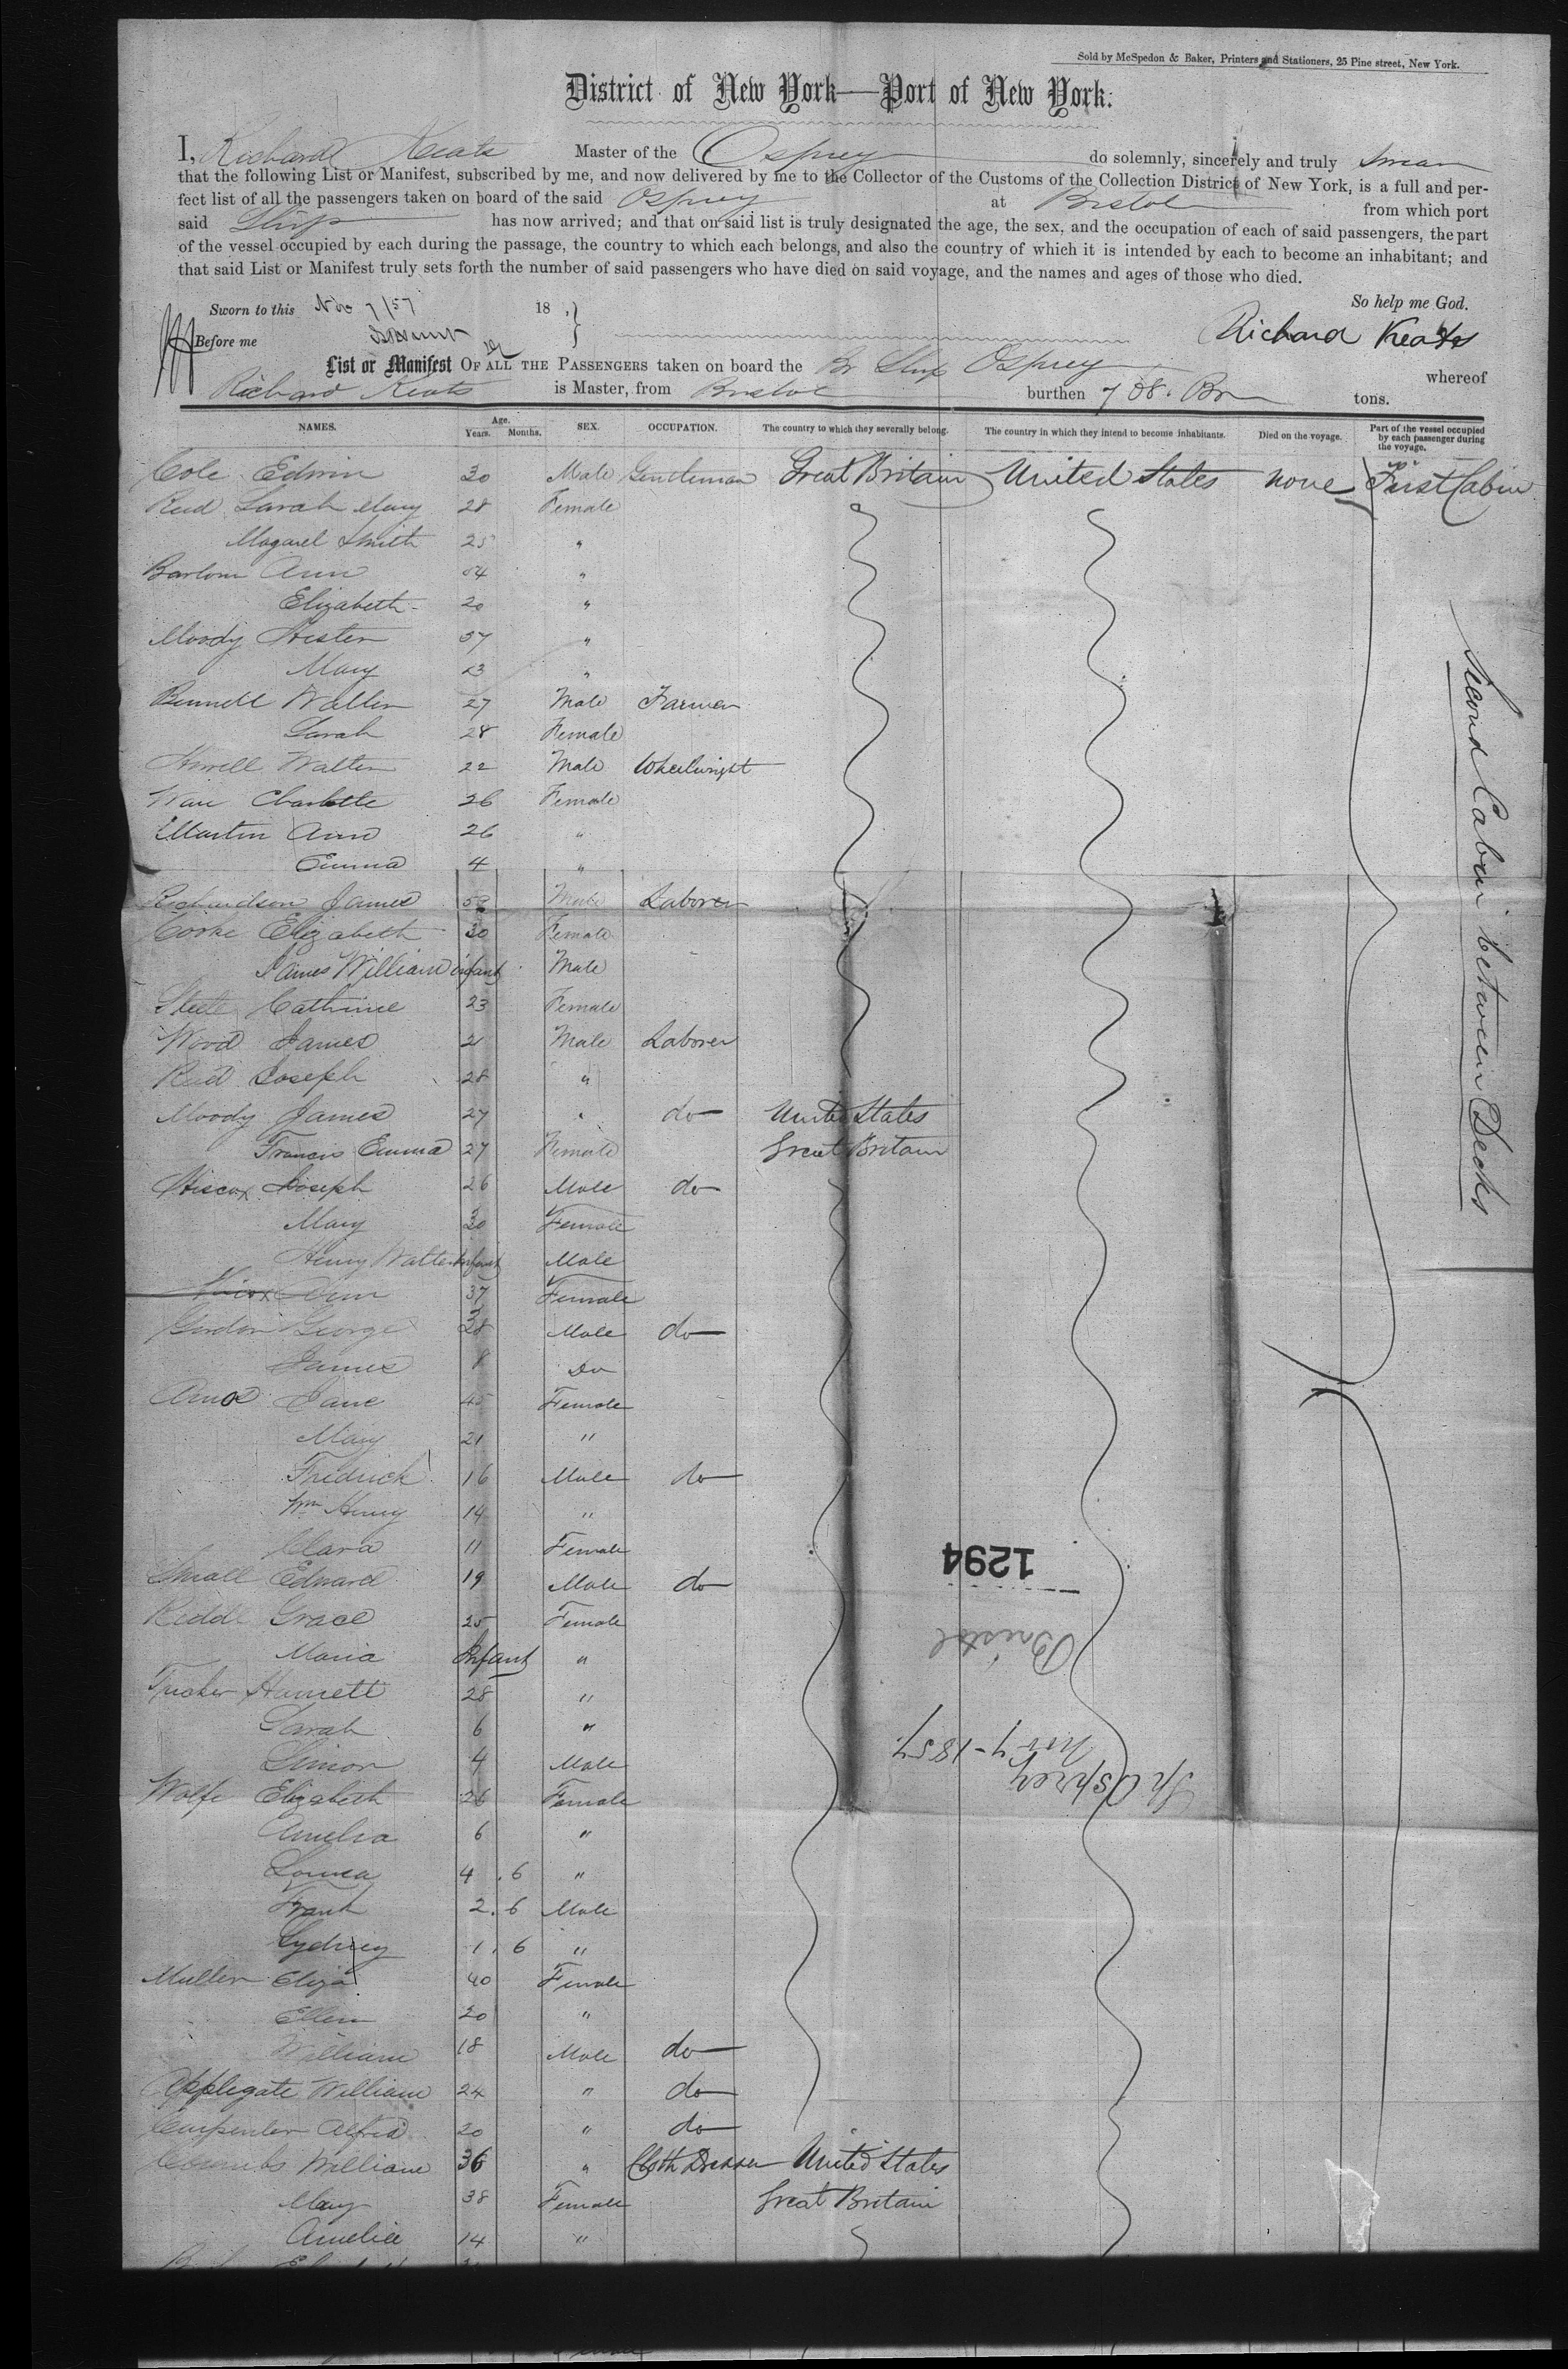 Sold by McSpedon & Baker, Printers and Stationers, 25 Pine street, New York.
District of New York—Port of New York.
I, Richard Keats Master of the Osprey do solemnly, sincerely and truly swear
that the following List or Manifest, subscribed by me, and now delivered by me to the Collector of the Customs of the Collection District of New York, is a full and per-
fect list of all the passengers taken on board of the said Osprey at Bristol from which port
said Ship has now arrived; and that on said list is truly designated the age, the sex, and the occupation of each of said passengers, the part
of the vessel occupied by each during the passage, the country to which each belongs, and also the country of which it is intended by each to become an inhabitant; and
that said List or Manifest truly sets forth the number of said passengers who have died on said voyage, and the names and ages of those who died.
Sworn to this Nov 7/57 18 So help me God.
Before me Richard Keats
List or Manifest OF ALL THE PASSENGERS taken on board the Br Ship Osprey whereof
Richard Keats is Master, from Bristol burthen 708 tons.
NAMES. Age. Years. Months. SEX. OCCUPATION. The country to which they severally belong. The country in which they intend to become inhabitants. Died on the voyage. Part of the vessel occupied by each passenger during the voyage.
Cole Edwin 30 Male Gentleman Great Britain United States none First Cabin
Reid Sarah Mary 28 Female
Smith 25 "
Ann "
Elizabeth 20 "
Moody Hester 57 "
Mary 23 "
Bennett 27 Male Farmer
Sarah 28 Female
Walter 22 Male Wheelwright
Charlotte 26 Female
Martin Ann 26 "
Emma 4 "
Richardson James Male Laborer
Cooke Elizabeth 30 Female
James William infant Male
Cathrine 23 Female
Wood James 21 Male Laborer
Reid Joseph 28 "
Moody James 27 " do United States
Francis Emma 27 Female Great Britain
Hiscox Joseph 26 Male do
Mary 30 Female
Henry Walter Infant Male
Ann 37 Female
Gordon George 38 Male do
James 8 Do
Amos Jane 45 Female
Mary 21 "
Fredrick 16 Male do
Wm Henry 14 "
Clara 11 Female
Small Edward 19 Male do
Riddle Grace 25 Female
Maria Infant "
Tucker Harriett 28 "
Sarah 6 "
Simon 4 Male
Wolfe Elizabeth 26 Female
Amelia 6 "
Louisa 4 . 6 "
Frank 2 . 6 Male
Sydney 1 . 6 "
Muller Eliza 40 Female
Ellen 20 "
William 18 Male do
Applegate William 24 " do
Carpenter Alfred 20 " do
William 36 " Cloth Dresser United States
Mary 38 Female Great Britain
Amelia 14 "
Second Cabin between Decks
1294
Bristol
Sh Osprey
Nov 7 - 1857